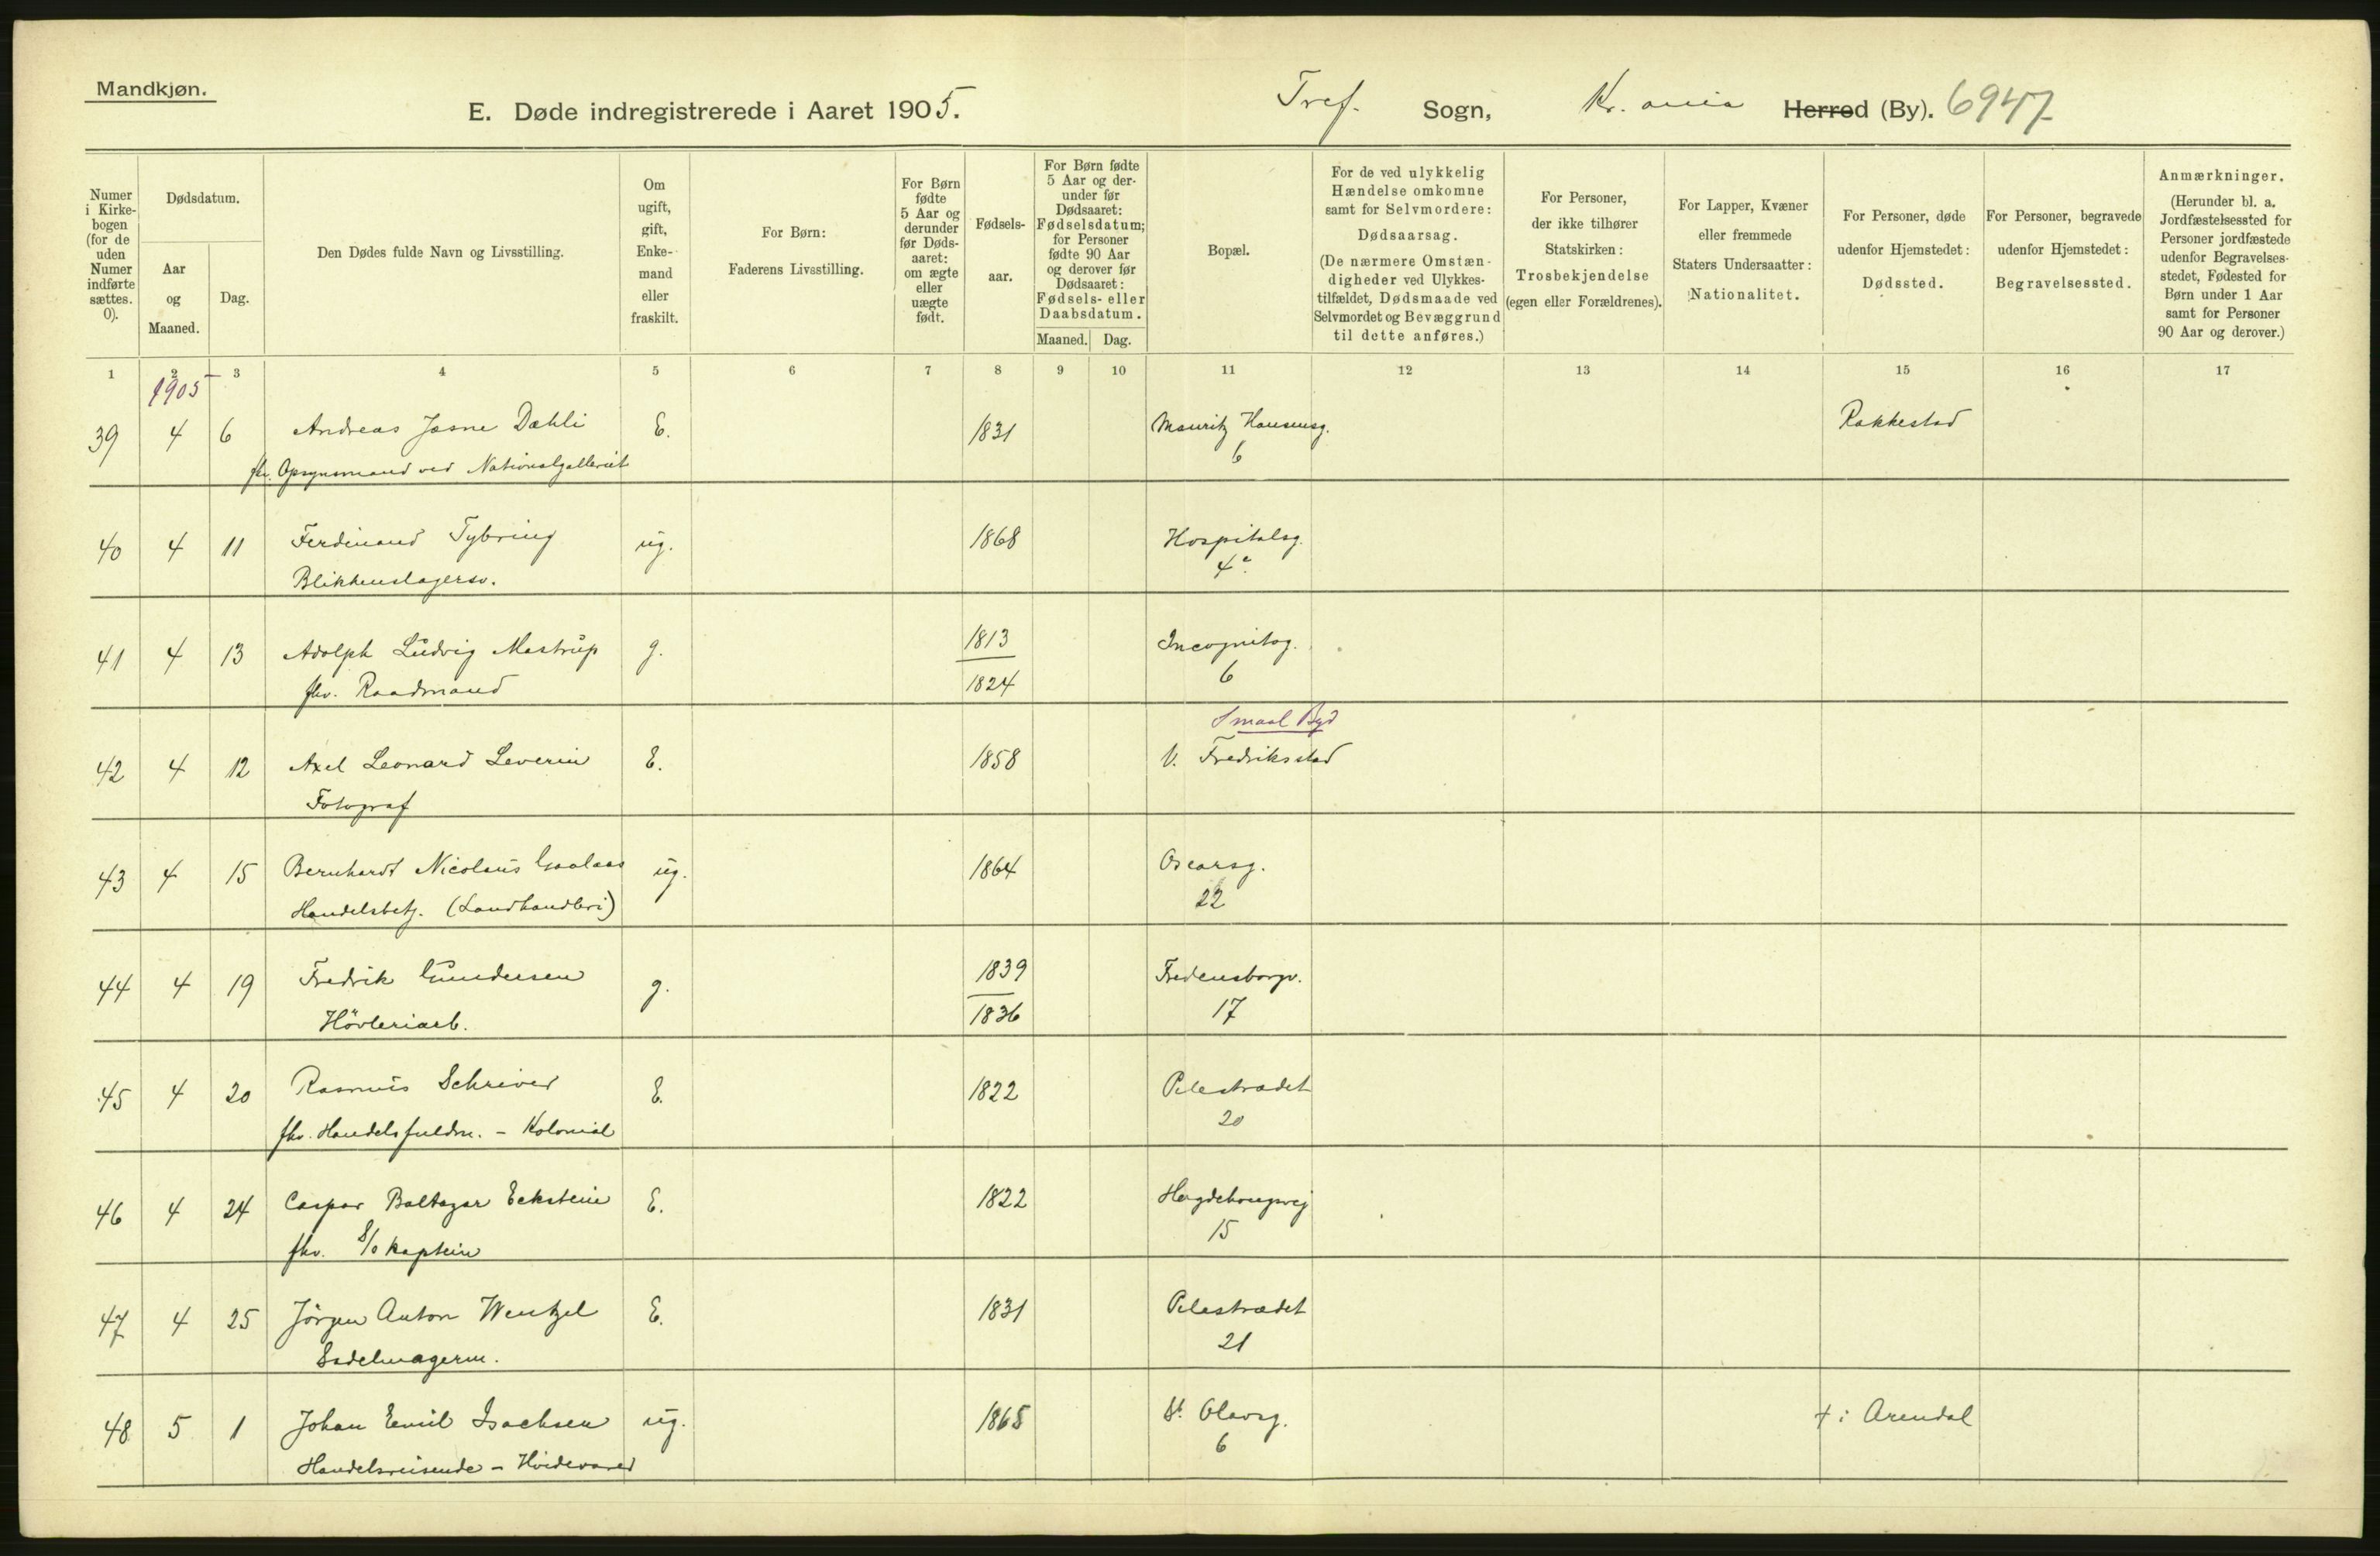 Mandkjøn.
E. Døde indregistrerede i Aaret 1905. Tref. Sogn, Kr. ania Herred (By). 6947
Numer i Kirkebogen (for de uden Numer indførte sættes. 0).
Dødsdatum.
Aar og Maaned.
Dag.
Den Dødes fulde Navn og Livsstilling.
Om ugift, gift, Enkemand eller fraskilt.
For Børn: Faderens Livsstilling.
For Børn fødte 5 Aar og derunder før Dødsaaret: om ægte eller uægte født.
Fødselsaar.
For Børn fødte 5 Aar og derunder før Dødsaaret: Fødselsdatum; for Personer fødte 90 Aar og derover før Dødsaaret: Fødsels- eller Daabsdatum.
Maaned. Dag.
Bopæl.
For de ved ulykkelig Hændelse omkomne samt for Selvmordere: Dødsaarsag. (De nærmere Omstændigheder ved Ulykkestilfældet, Dødsmaade ved Selvmordet og Bevæggrund til dette anføres.)
For Personer, der ikke tilhører Statskirken: Trosbekjendelse (egen eller Forældrenes).
For Lapper, Kvæner eller fremmede Staters Undersaatter: Nationalitet.
For Personer, døde udenfor Hjemstedet: Dødssted.
For Personer, begravede udenfor Hjemstedet: Begravelsessted.
Anmærkninger. (Herunder bl. a. Jordfæstelsessted for Personer jordfæstede udenfor Begravelsesstedet, Fødested for Børn under 1 Aar samt for Personer 90 Aar og derover.)
1 2 3 4 5 6 7 8 9 10 11 12 13 14 15 16 17
1905
39 4 6 Andreas Jasne Dæhli E. 1831 Mauritz Hansensg. Rakkestad
fhv. Opsynsmand ved Nationalgalleriet 6
40 4 11 Ferdinand Tybring ug. 1868 Hospitalsg.
Blikkenslagersv. 4a
41 4 13 Adolph Ludvig Mastrup g. 1813 Incognitog.
fhv. Raadmand 1824 6
Smaal Byd
42 4 12 Axel Leonard Leverin E. 1858 V. Fredriksstad
Fotograf
43 4 15 Bernhardt Nicolaus Gaalaas ug. 1864 Oscarsg.
Handelsbetj. (Landhandleri) 22
44 4 19 Fredrik Gundersen g. 1839 Fredensborgv.
Hövleriarb. 1836 17
45 4 20 Rasmus Schriver E. 1822 Pilestrædet
fhv. Handelsfuldm. - Kolonial 20
46 4 24 Caspar Baltazar Eckstein E. 1822 Hægdehougsvej
fhv. S/o kaptein 15
47 4 25 Jörgen Anton Wentzel E. 1831 Pilestrædet
Sadelmagerm. 21
48 5 1 Johan Emil Isachsen ug. 1865 St. Olavsg. † i Arendal
Handelsreisende - Hvidevarer 6